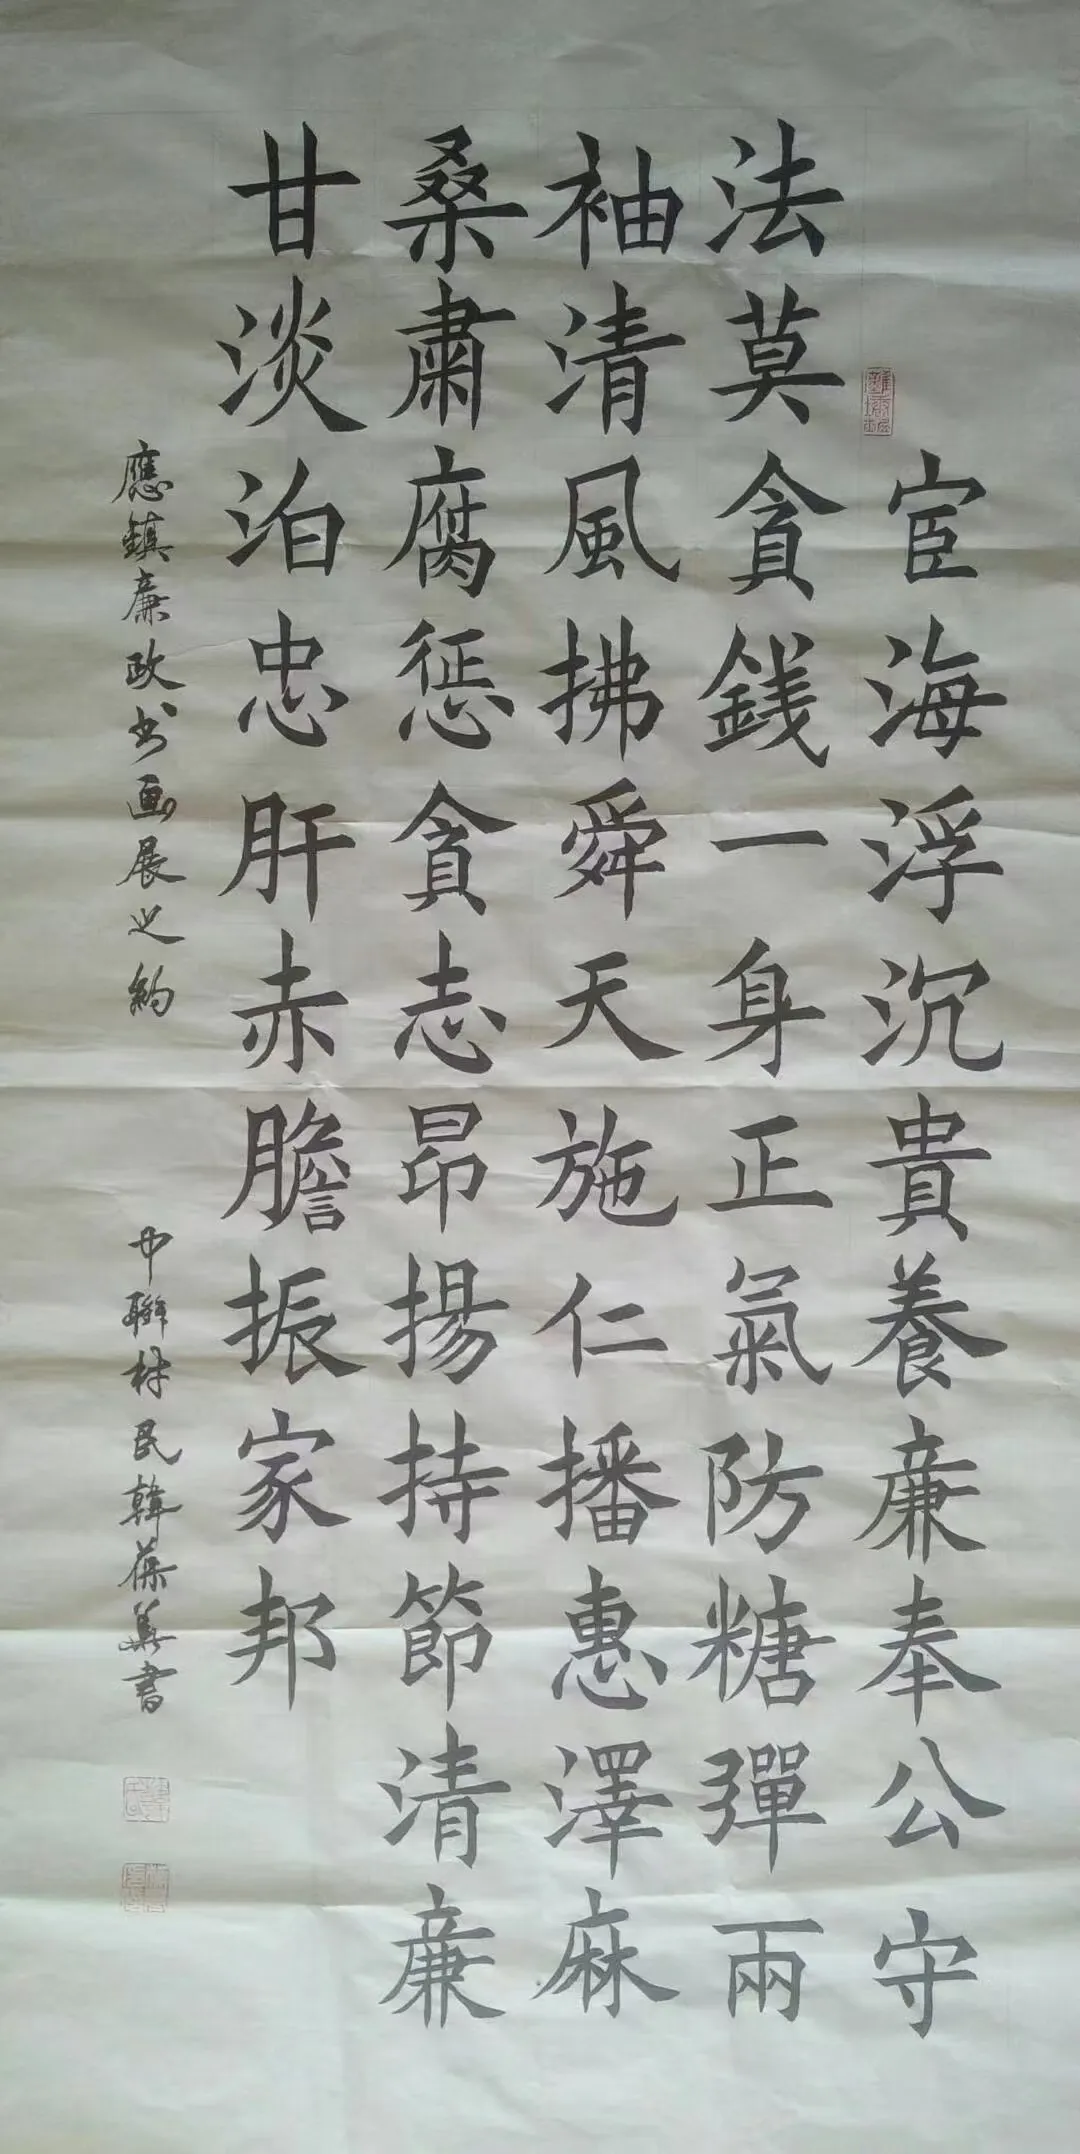 宦海浮沉貴養廉奉公守
法莫貪銭一身正氣防糖彈兩
袖清風拂舜天施仁播惠澤麻
桑肅腐惩貪志昂揚持節清廉
甘淡泊忠肝赤膽振家邦
應鎮廉政书画展之約
中聯村民韓葆華書